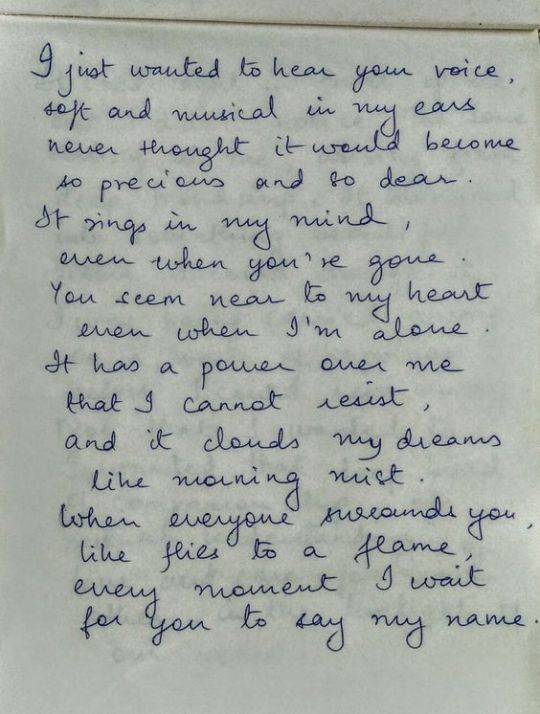 I just wanted to hear your voice,
soft and musical in my ears
never thought it would become
so precious and so dear.
It rings in my mind,
even when you're gone.
You seem near to my heart
even when I'm alone.
It has a power over me
that I cannot resist,
and it clouds my dreams
like morning mist.
When everyone surrounds you,
like flies to a flame,
every moment I wait
for you to say my name.